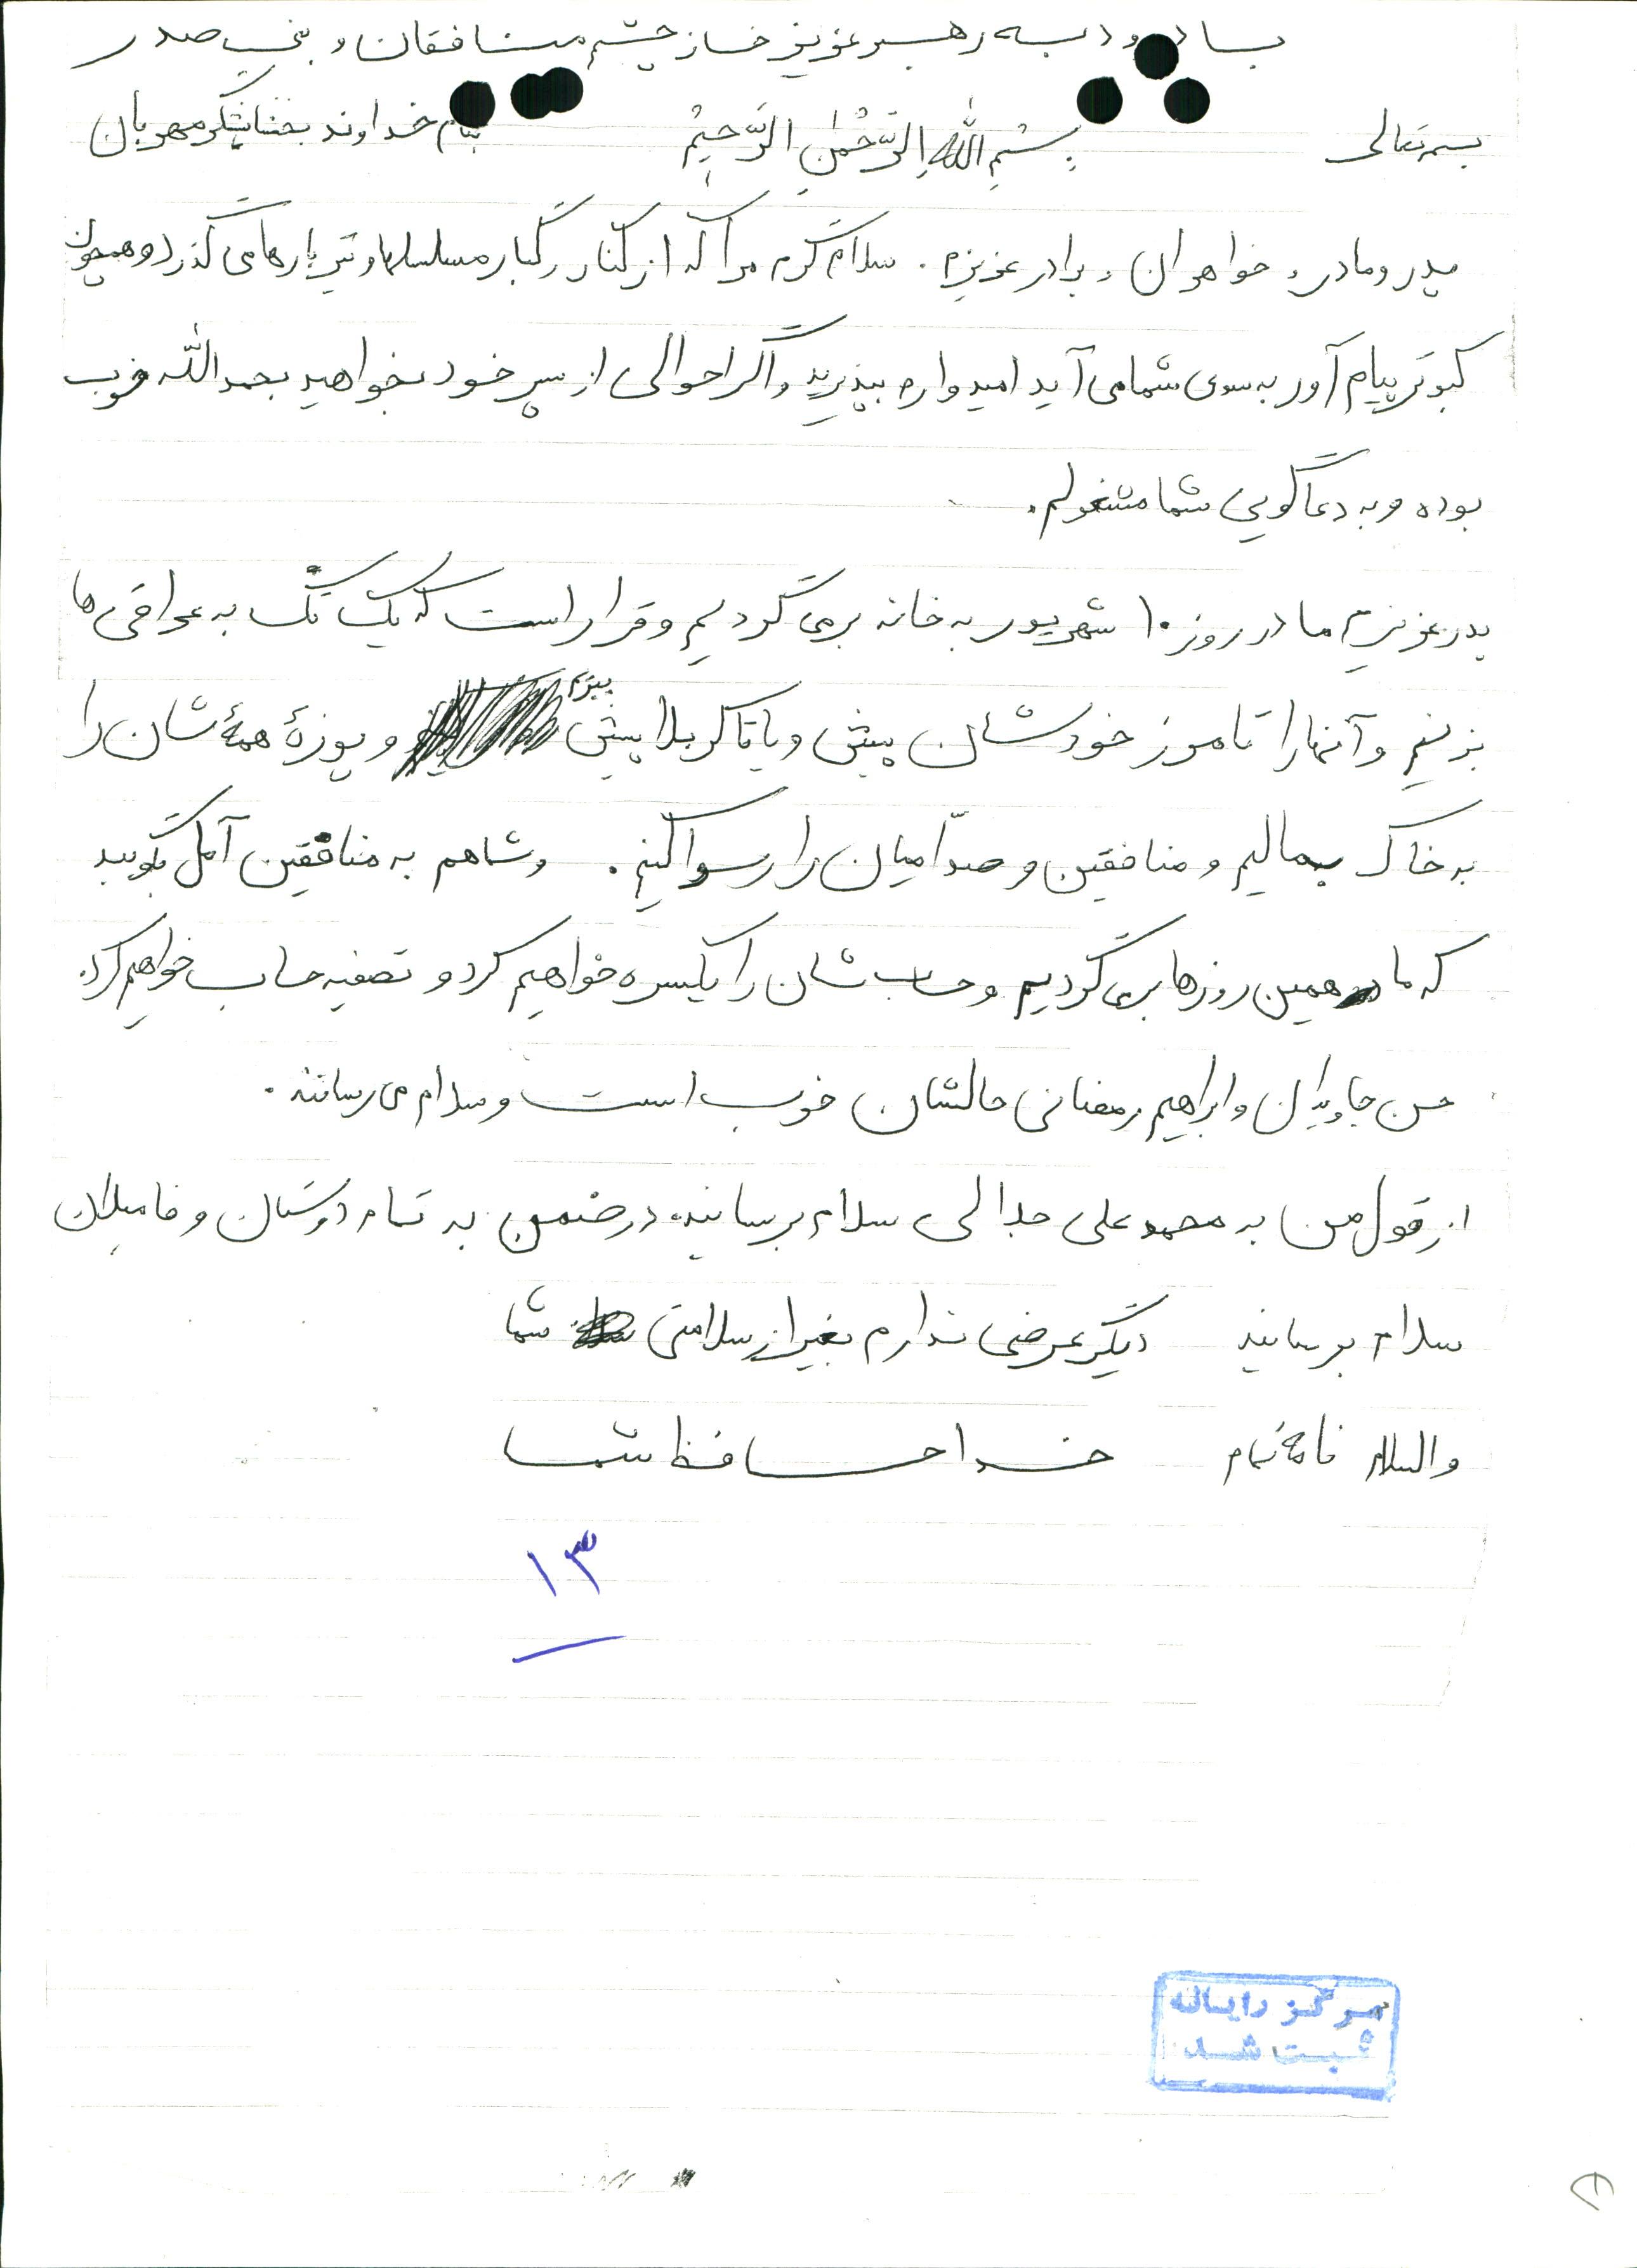 با درود به رهبر عزیز خار چشم منافقان و بنی صدر
بسمه تعالی بِسْمِ اللهِ الرَّحْمٰنِ الرَّحیْمِ بنام خداوند بخشایشگر مهربان
پدر و مادر و خواهران و برادر عزیزم. سلام گرم مرا که از کنار رگبار مسلسلها و تیربارها می گذرد و همچون
کبوتر پیام آور به سوی شما می آید امیدوارم بپذیرید و اگر احوالی از پسر خود بخواهید بحمدالله خوب
بوده و به دعاگویی شما مشغولم.
پدر عزیزم ما در روز ۱۰ شهریور به خانه برمی گردیم و قرار است که یک تک به عراقی ها
بزنیم و آنها را تا مرز خودشان پیش و یا تا کربلا پیش ببریم و پوزهٔ همهٔ شان را
به خاک بمالیم و منافقین و صدّامیان را رسوا کنیم. و شما هم به منافقین آمل بگویید
که ما در همین روزها برمی گردیم و حساب شان را یکسره خواهیم کرد و تصفیه حساب خواهیم کرد.
حسن جاویدان و ابراهیم رمضانی حالشان خوب است و سلام می رسانند.
از قول من به محمد علی جدالی سلام برسانید. در ضمن به تمام دوستان و فامیلان
سلام برسانید دیگر عرضی ندارم بغیر از سلامتی شما
والسلام نامه تمام خداحافظ شما
۱۳
مرکز رایانه
ثبت شد